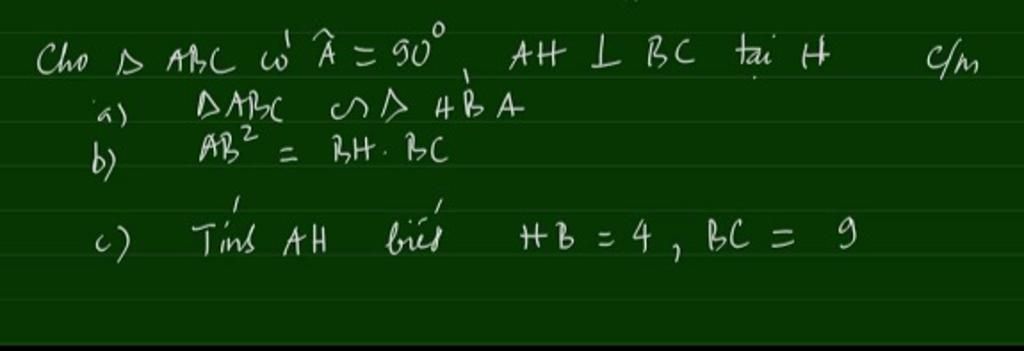 Cho Δ ABC có Â = 90°, AH ⊥ BC tại H c/m
a) ΔABC ∽ Δ HBA
b) AB² = BH. BC
c) Tính AH biết HB = 4, BC = 9